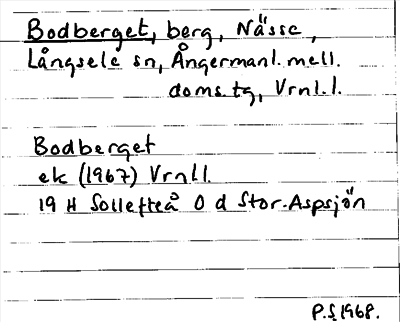 Bodberget, berg, Nässe,
Långsele sn, Ångermanl. mell.
doms.tg, Vrnl.l.
Bodberget
ek (1967) Vrnll.
19 H Sollefteå 0 d Stor-Aspsjön
P.S. 1968.